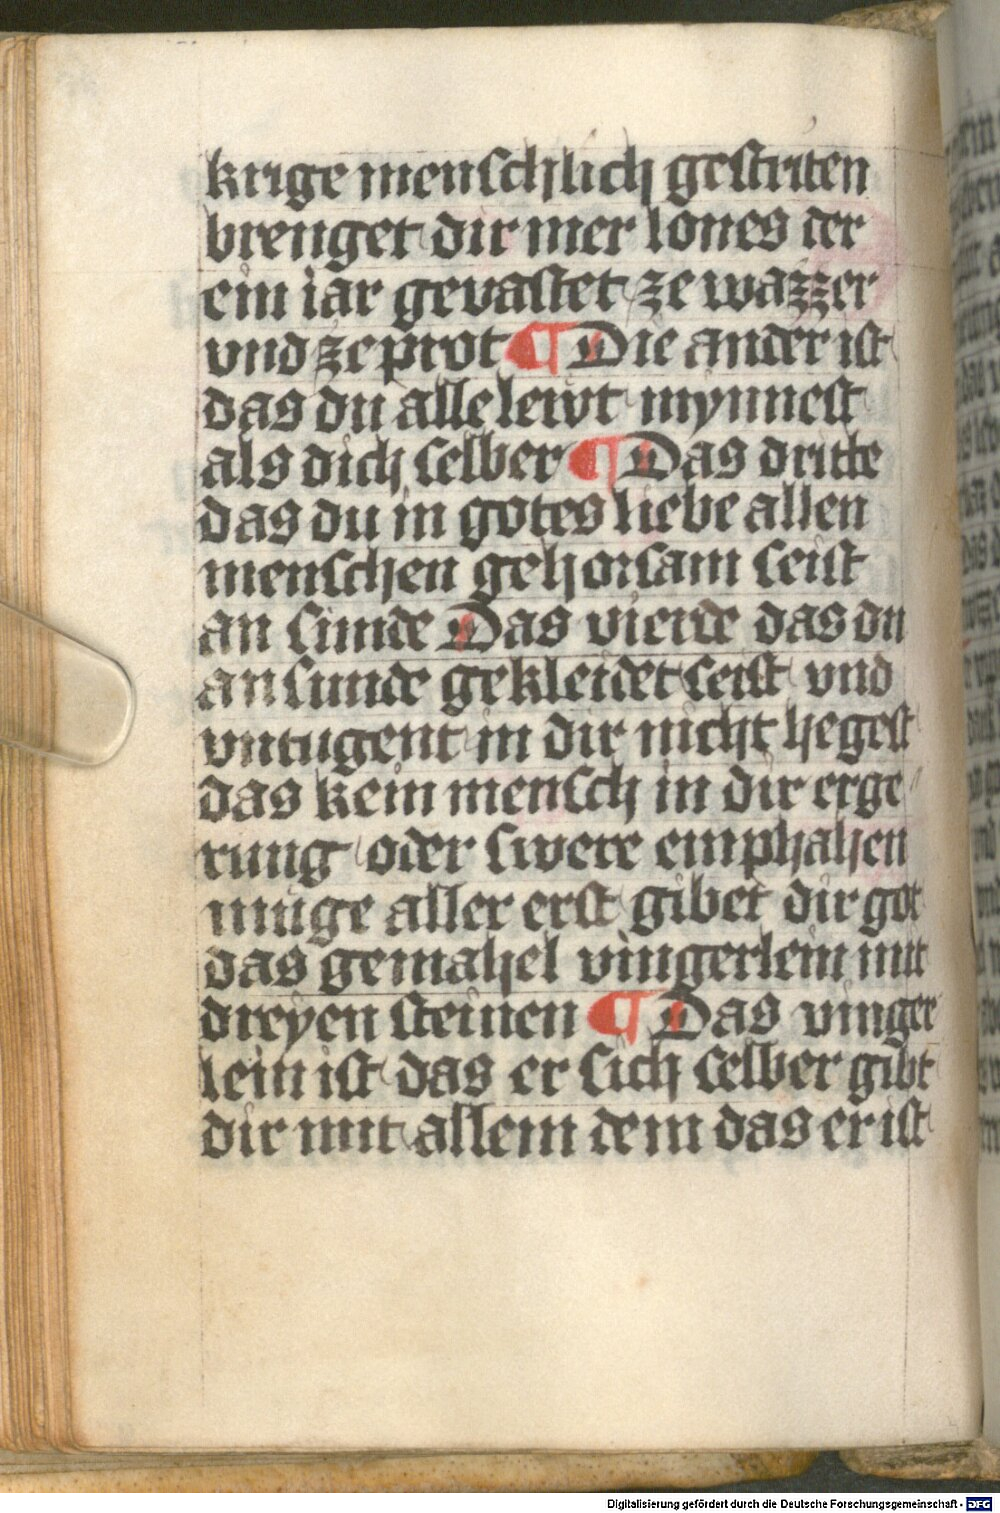 krige menschlich gestriten
brenget dir mer lones der
ein iar gevastet ze wazzer
vnd ze prot ¶ Die ander ist
das du alle lewt mynnest
als dich selber ¶ Das dritte
das du in gotes liebe allen
menschen gehorsam seist
an sunde Das vierde das du
an sunde gekleidet seist vnd
vntugent in dir nicht hegest
das kein mensch in dir erge
rung oder swere emphahen
muge aller erst gibet dir got
das gemahel vingerlein mit
dreyen steinen ¶ Das vinger
lein ist das er sich selber gibt
dir mit allem dem das er ist
Digitalisierung gefördert durch die Deutsche Forschungsgemeinschaft - DFG